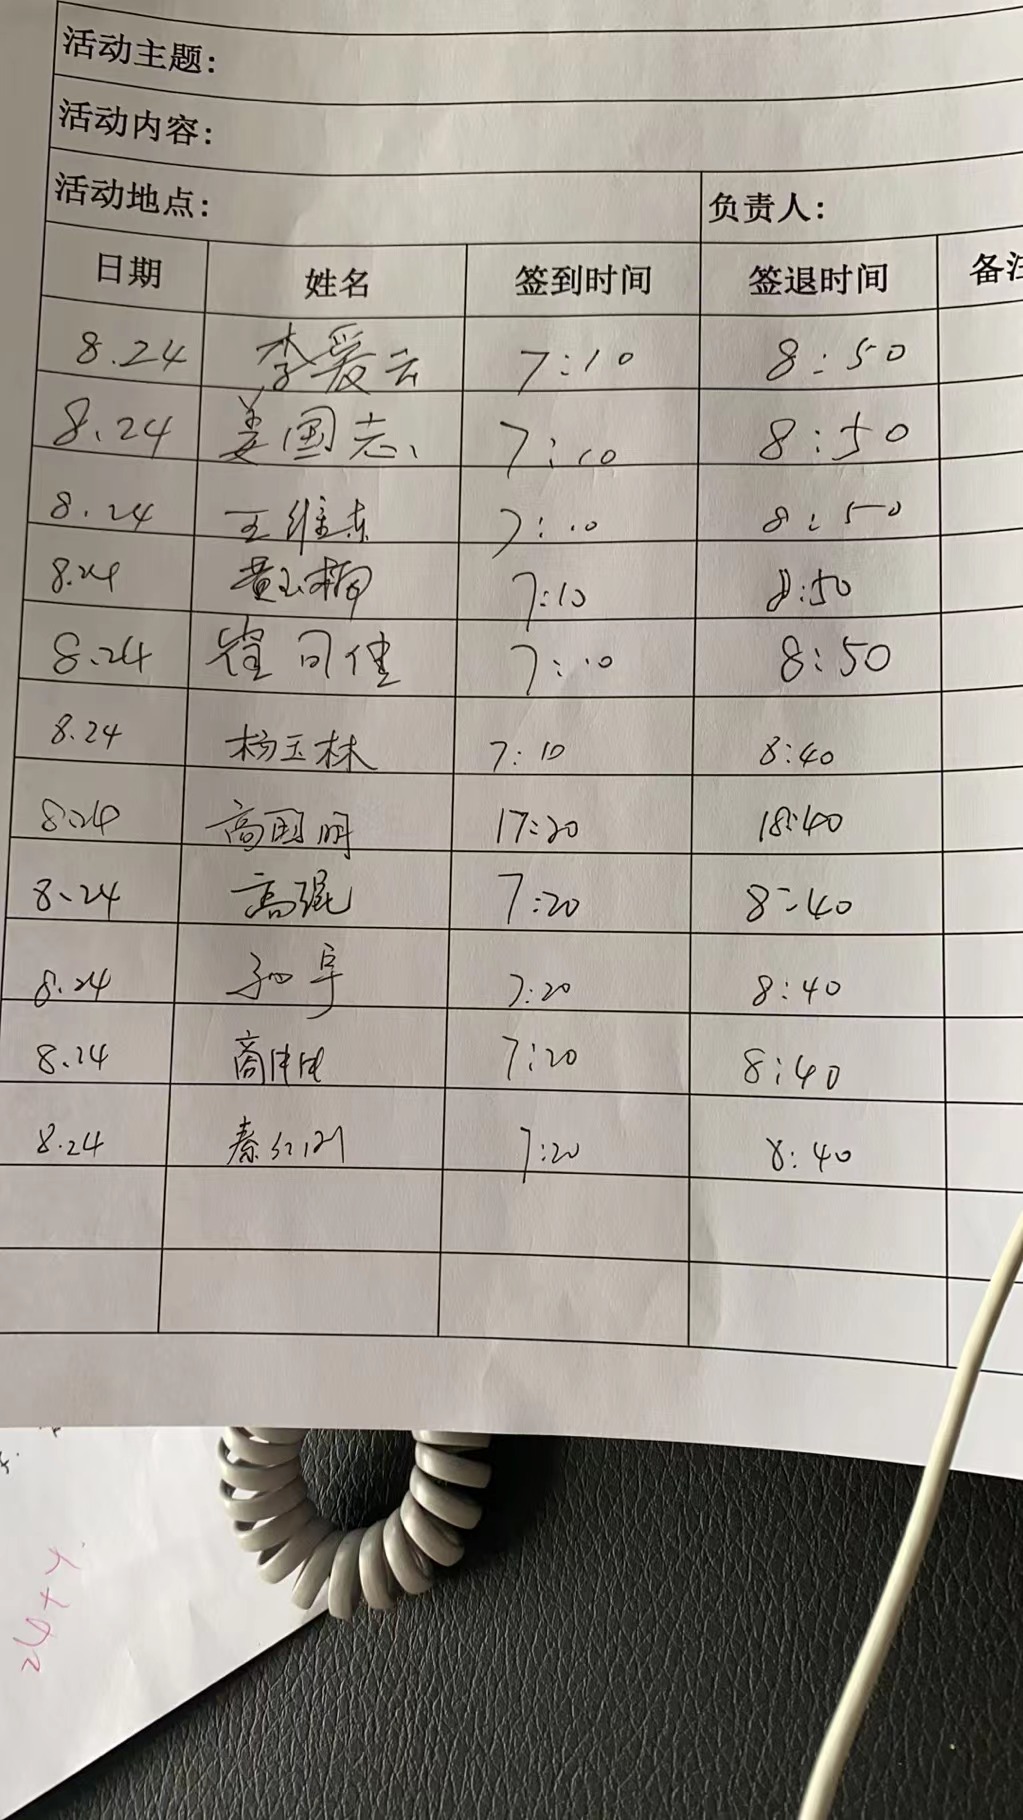 活动主题:
活动内容:
活动地点: 负责人:
日期 姓名 签到时间 签退时间 备注
8.24 李爱云 7:10 8:50
8.24 姜国志 7:10 8:50
8.24 王维东 7:10 8:50
8.24 黄玉楠 7:10 8:50
8.24 崔司佳 7:10 8:50
8.24 杨玉林 7:10 8:40
8.24 高国明 17:20 18:40
8.24 高强 7:20 8:40
8.24 7:20 8:40
8.24 7:20 8:40
8.24 7:20 8:40